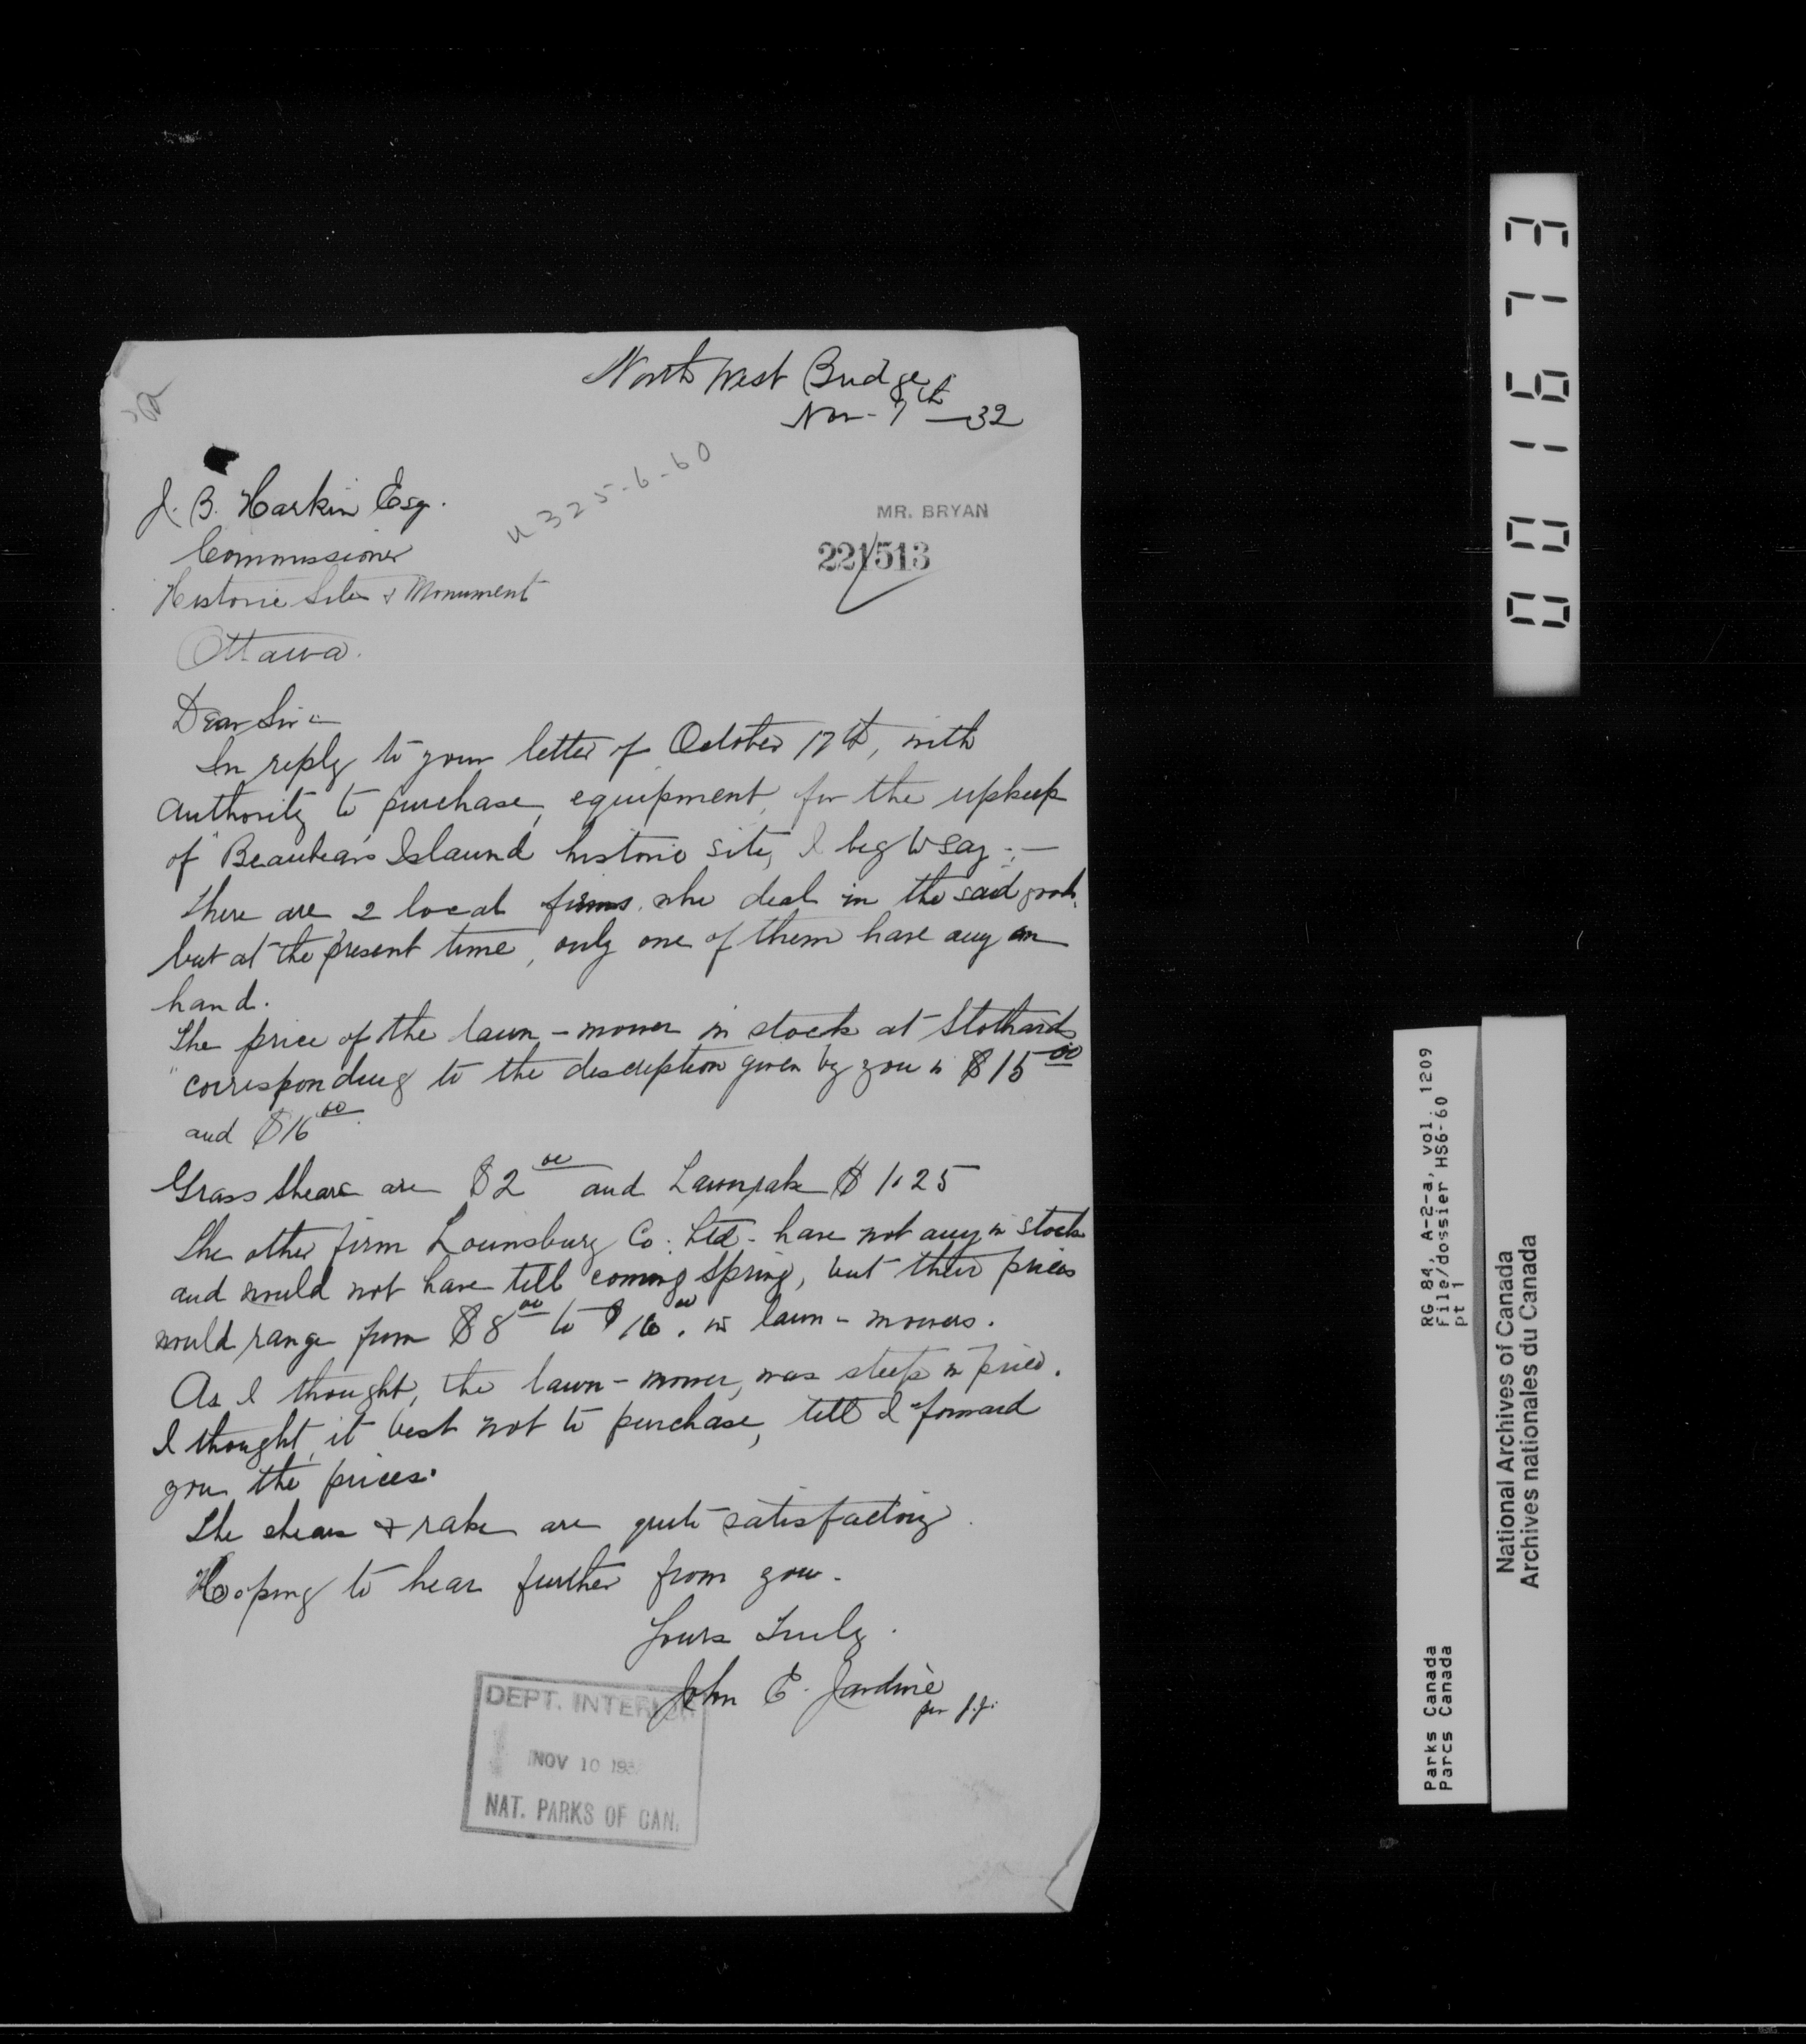 North West Bridge
Nov - 7th - 32
J. B. Harkin Esq.
U325-6-60
Commissioner
MR. BRYAN
221513
Historic Sites & Monument
Ottawa.
Dear Sir :-
In reply to your letter of October 17th, with
authority to purchase, equipment, for the upkeep
of "Beaubears Islaund historic site, I beg to say :-
There are 2 local firms who deal in the said goods,
but at the present time, only one of them have any on
hand.
The price of the lawn-mower in stock at Stothards
"corresponding to the description given by you is $15.00
and $16.00
Grass Shears are $2.00 and Lawnrake $1.25
The other firm Lounsbury Co. Ltd - have not any in stock
and would not have till coming Spring, but their prices
would range from $8.00 to $16.00 in lawn-mowers.
As I thought, the lawn-mower, was steep in price.
I thought, it best not to purchase, till I forward
you the prices.
The shears & rake are quite satisfactory.
Hooping to hear further from you.
Yours Truly.
John E. Jardine
per J.J.
DEPT. INTERIOR
NOV 10 193
NAT. PARKS OF CAN.
001673
RG 84, A-2-a, vol. 1209
File/dossier HS6-60
pt 1
Parks Canada
Parcs Canada
National Archives of Canada
Archives nationales du Canada